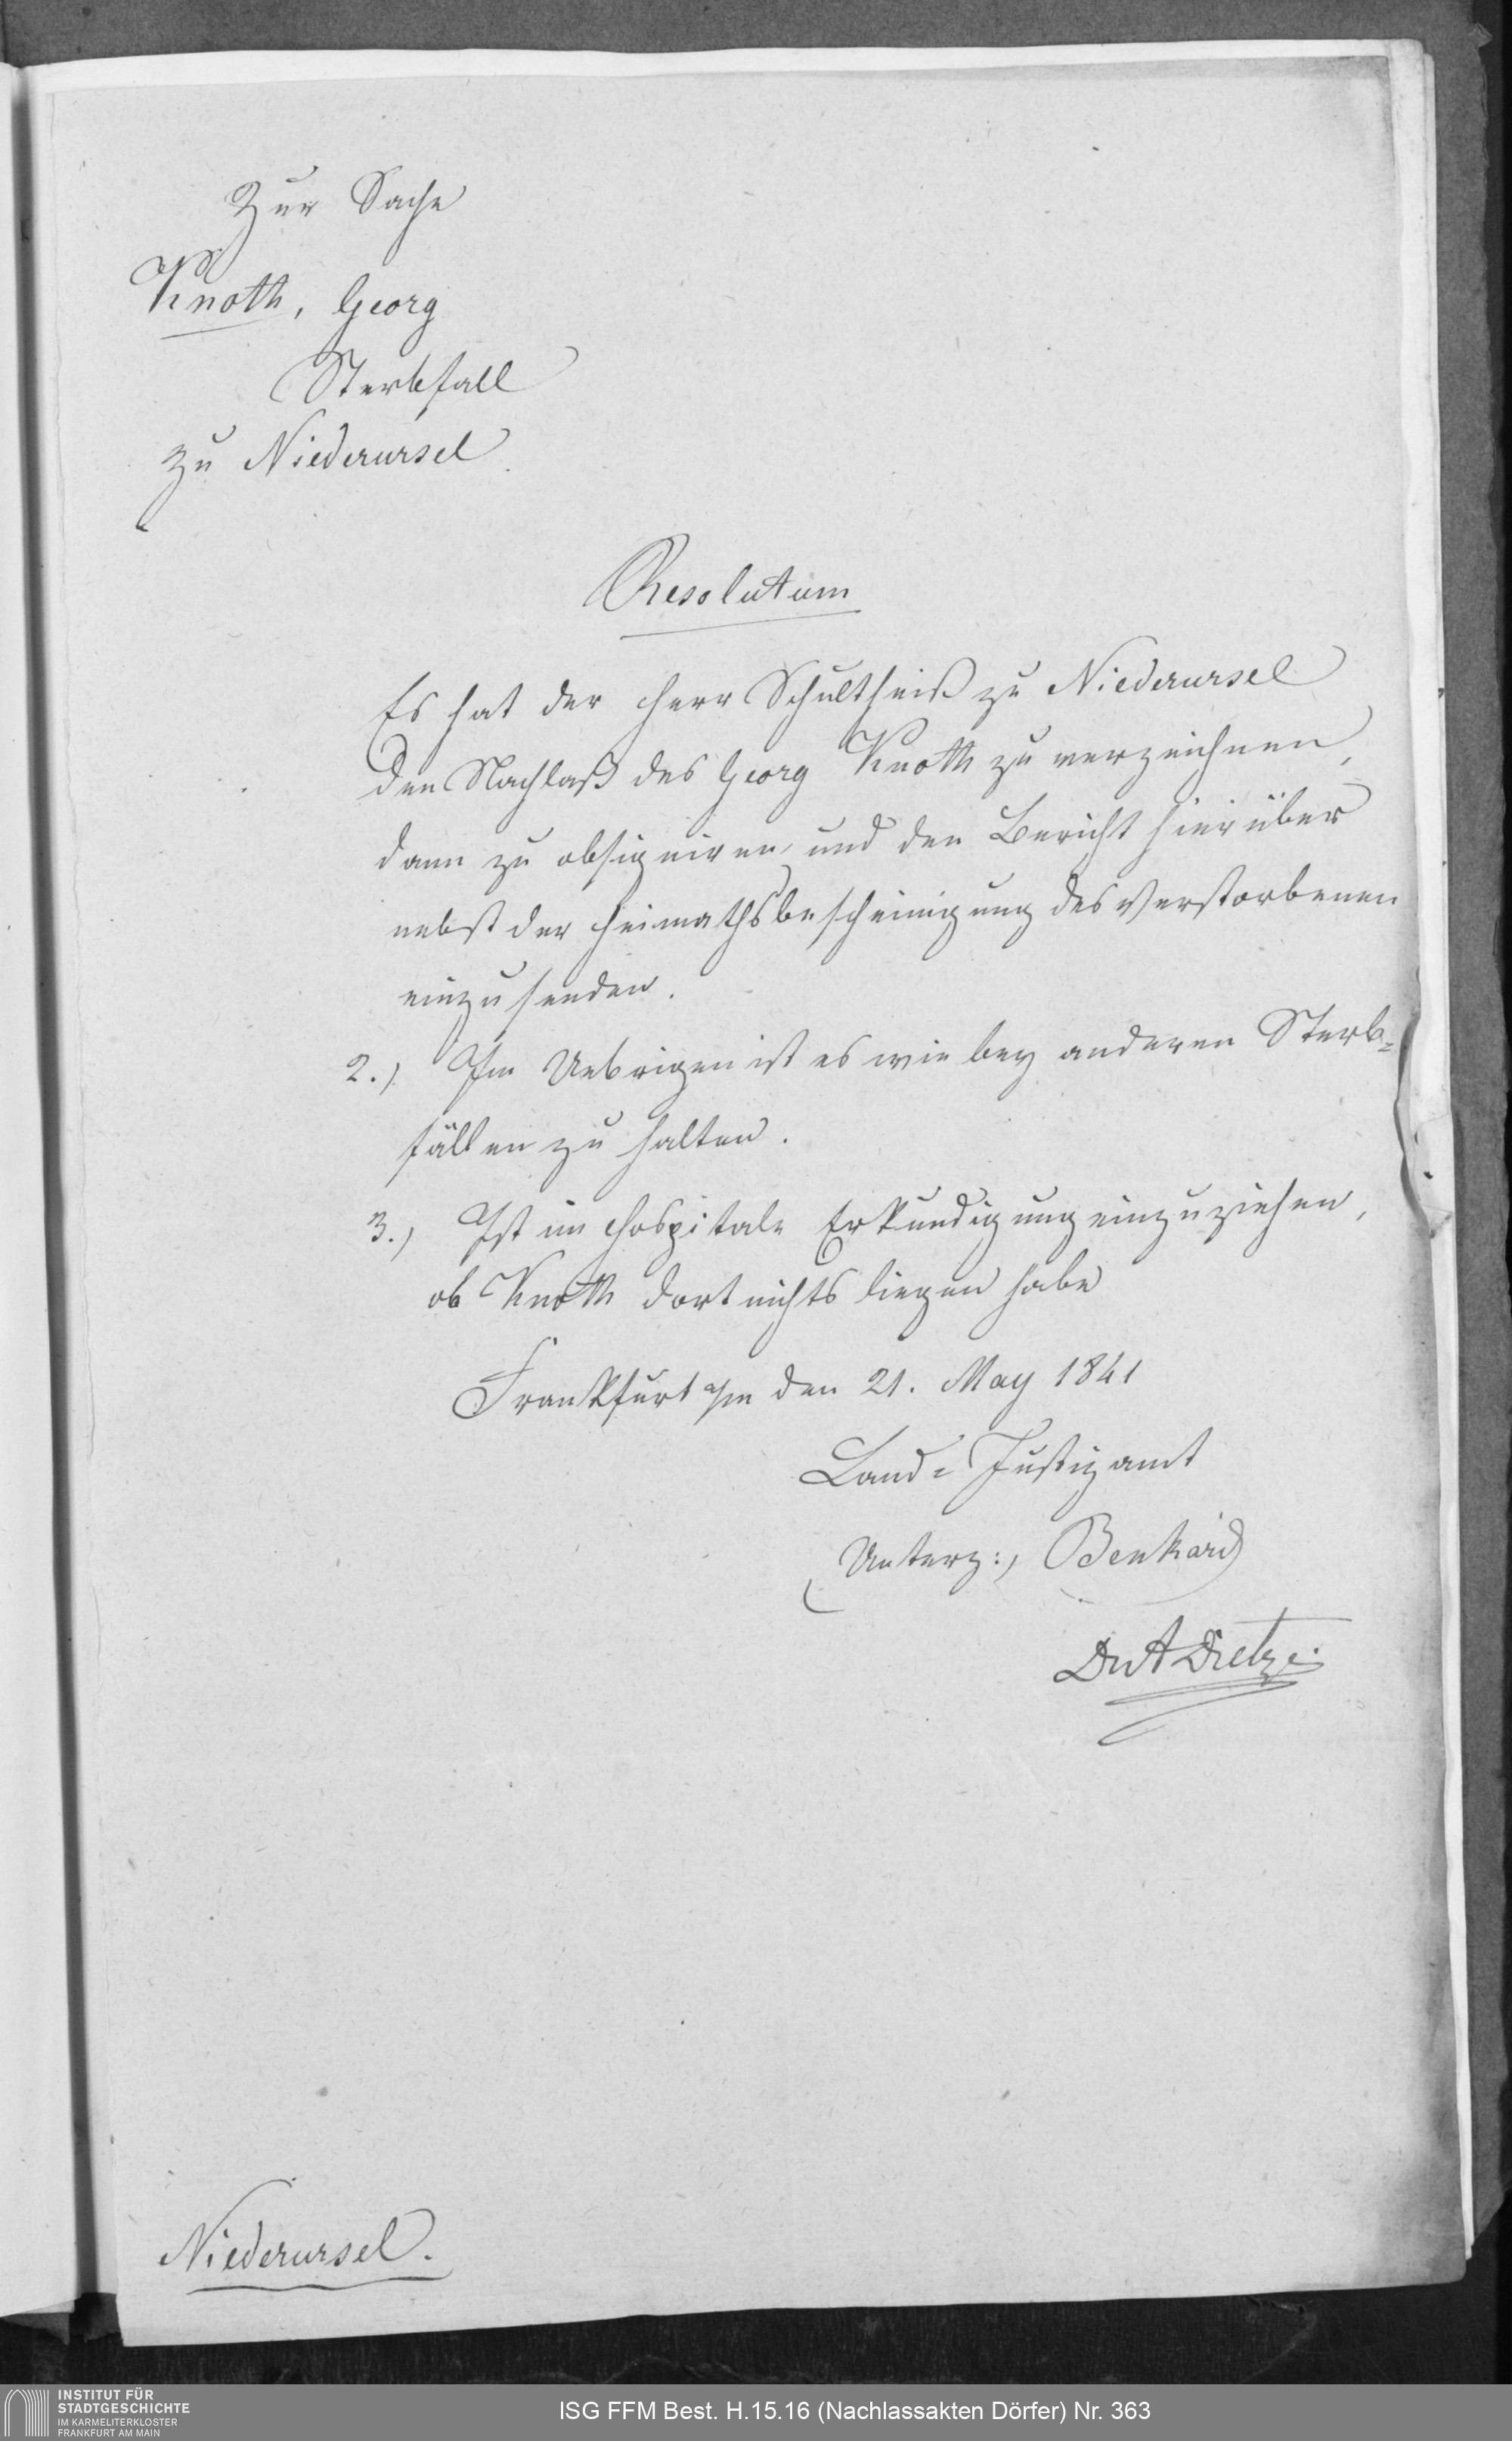 Zur Sache
Knoth, Georg
Sterbfall
zu Niederursel.
Resolutum
Es hat der Herr Schultheiß zu Niederursel
den Nachlaß des Georg Knoth zu verzeichnen,
dann zu obsigniren, und den Bericht hierüber
nebst der Heimathsbescheinigung des Verstorbenen
einzusenden.
2.) Im Uebrigen ist es wie bey anderen Sterb=
fällen zu halten.
3.) Ist im Hospitale Erkundigung einzuziehen,
ob Knoth dort nichts liegen habe
Frankfurt a/m den 21. May 1841
Land=Justizamt
(Unterz:) Benkard
Dr A Dietze.
Niederursel.
INSTITUT FÜR
STADTGESCHICHTE
IM KARMELITERKLOSTER
FRANKFURT AM MAIN
ISG FFM Best. H.15.16 (Nachlassakten Dörfer) Nr. 363